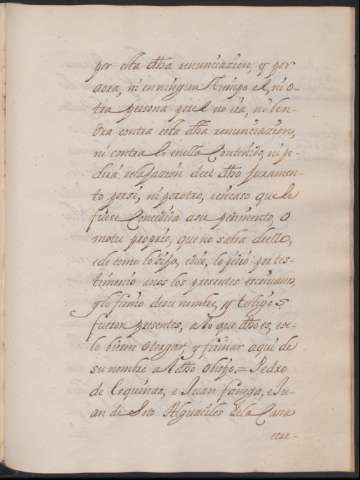 por esta dha renunciacion, y por
aora, ni en ningun tiempo el, ni o-
tra persona por el no ira, ni ven-
dra contra esta dha renunciacion,
ni contra lo en ella contenido, ni pe-
dirá relaxacion de el dho juramen-
to por si, ni por otro, en caso que le
fuere concedida a su pedimento, o
motu proprio, que no usara de ello,
e de como lo dijo, e dixo, lo pidio por tes-
timonio a nos los presentes escrivanos,
y lo firmo de su nombre, y testigos
fueron presentes, a lo que dho es, e
lo vieron otorgar, y firmar aqui de
su nombre a el dho obispo = Pedro
de Esquinas, e Juan Fanega, e Ju-
an de Soto Alguaciles de la Cara